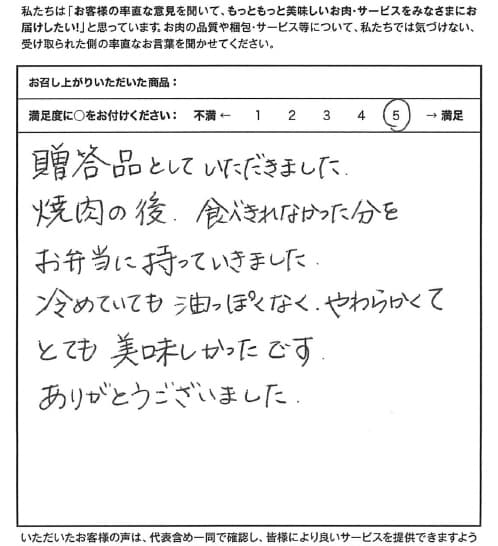 私たちは「お客様の率直な意見を聞いて、もっともっと美味しいお肉・サービスをみなさまにお
届けしたい!」と思っています。お肉の品質や梱包・サービス等について、私たちでは気づけない、
受け取られた側の率直なお言葉を聞かせてください。
お召し上がりいただいた商品：
満足度に○をお付けください： 不満 ← 1 2 3 4 5 → 満足
贈答品としていただきました.
焼肉の後. 食べきれなかった分を
お弁当に持っていきました.
冷めていても油っぽくなく.やわらかくて
とても美味しかったです.
ありがとうございました.
いただいたお客様の声は、代表含め一同で確認し、皆様により良いサービスを提供できますよう